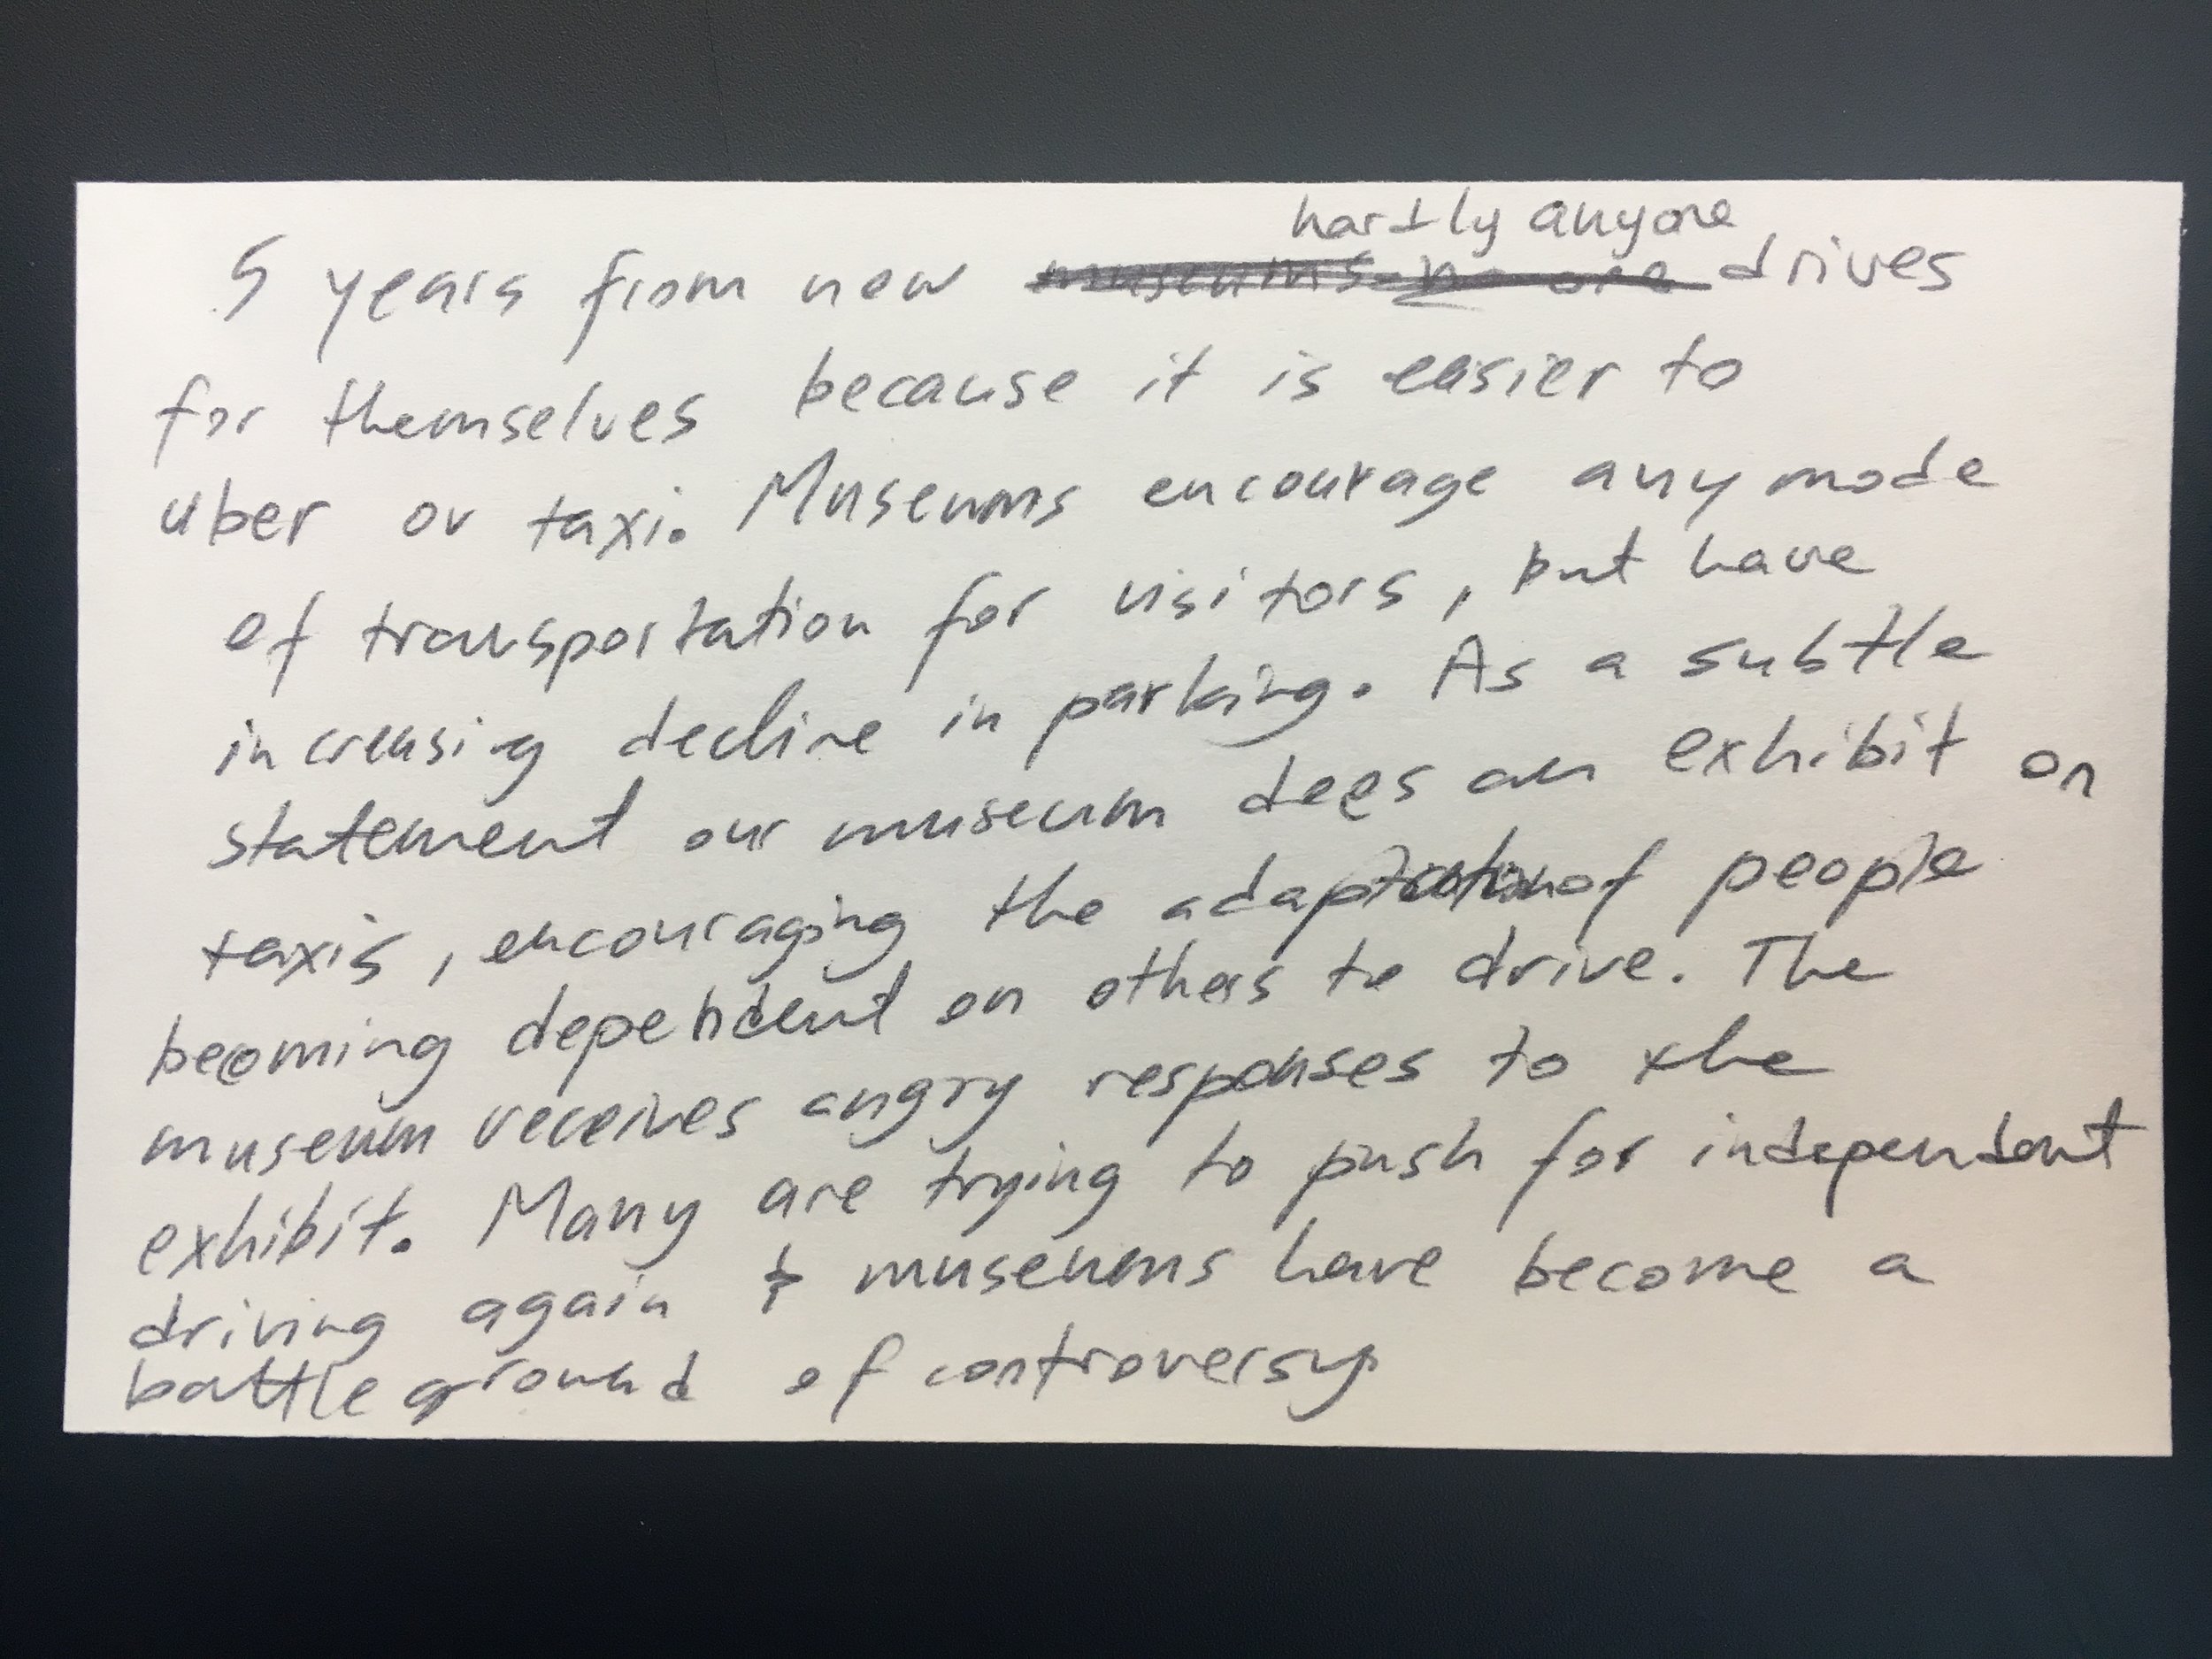 5 years from now museums no one hardly anyone drives
for themselves because it is easier to
uber or taxi. Museums encourage any mode
of transportation for visitors, but have
increasing decline in parking. As a subtle
statement our museum does an exhibit on
taxis, encouraging the adaptation of people
becoming dependent on others to drive. The
museum receives angry responses to the
exhibit. Many are trying to push for independent
driving again & museums have become a
battleground of controversy.